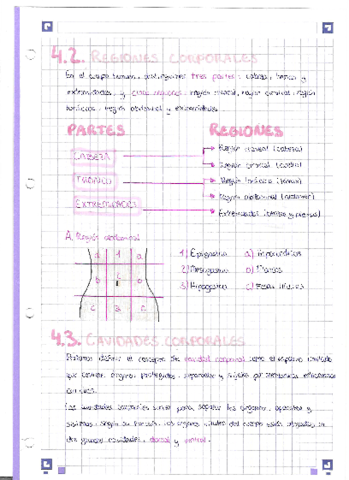 4.2. REGIONES CORPORALES
En el cuerpo humano, distinguimos tres partes: cabeza, tronco y
extremidades, y cinco regiones: región craneal, región cervical, región
torácica, región abdominal y extremidades.
PARTES REGIONES
CABEZA
TRONCO
EXTREMIDADES
Región craneal (cabeza)
Región cervical (cuello)
Región torácica (tórax)
Región abdominal (abdomen)
Extremidades (brazos y piernas)
A. Región abdominal
a 1 a
b 2 b
c 3 c
1) Epigastrio a) Hipocondrios
2) Mesogastrio b) Flancos
3) Hipogastrio c) Fosas ilíacas
4.3. CAVIDADES CORPORALES
Podemos definir el concepto de cavidad corporal como el espacio
que contiene órganos protegidos, separados y sujetos por membranas
Las cavidades corporales sirven para separar los órganos, aparatos y
sistemas, según su función. Los órganos vitales del cuerpo están alojados en
dos grandes cavidades, dorsal y ventral.